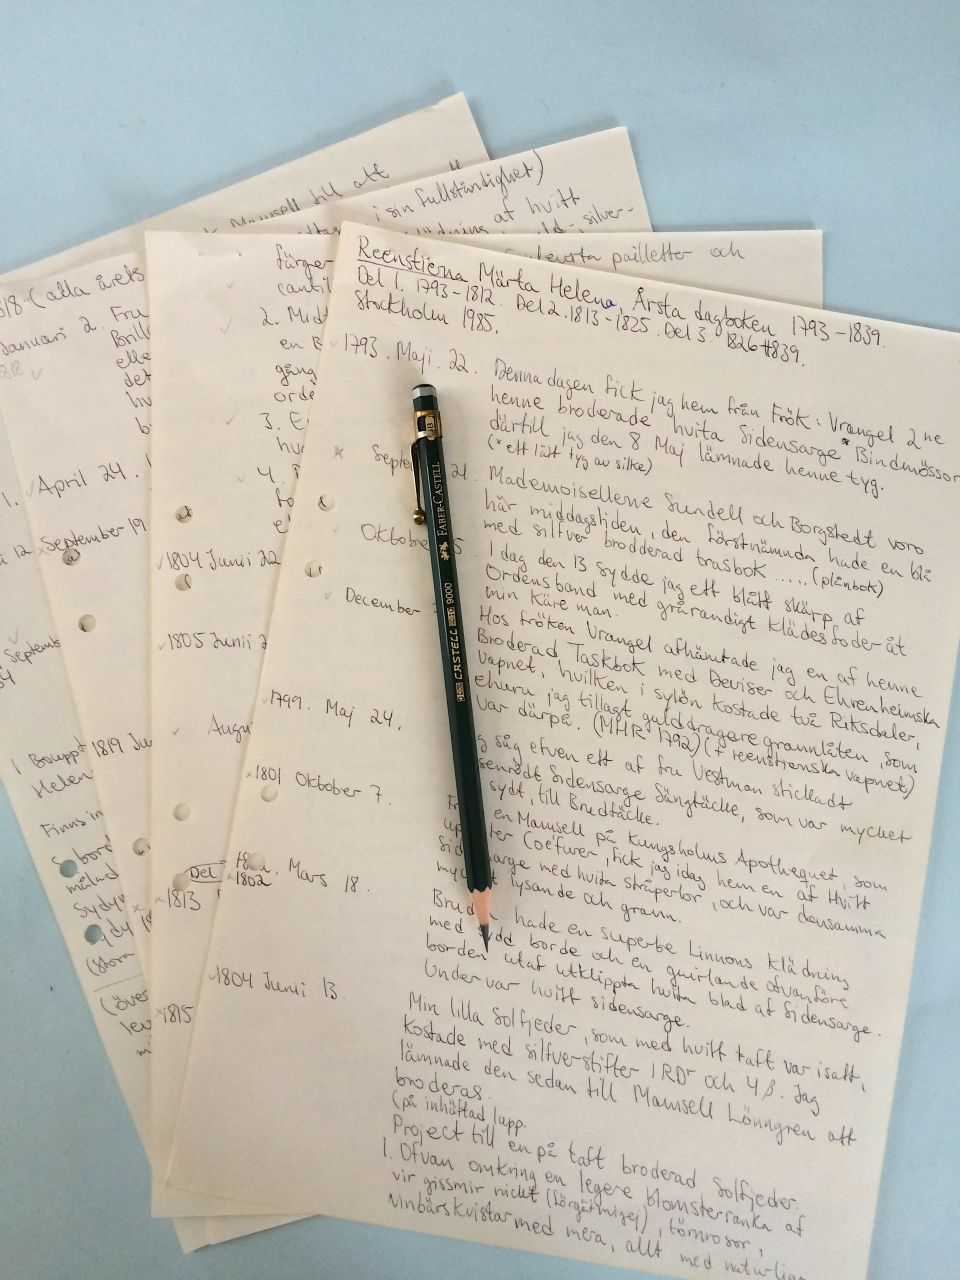 Reenstierna Märta Helena, Årsta dagboken 1793-1839.
Del 1. 1793-1812. Del 2. 1813-1825. Del 3. 1826-1839.
Stockholm 1985.
1793. Maji. 22. Denna dagen fick jag hem från Frök. Vrangel 2ne
henne broderade hvita Sidensarge * Bindmössor
därtill jag den 8 Maj lämnade henne tyg.
(* ett lätt tyg av silke)
Septem 21. Mademoisellerne Sundell och Borgstedt voro
här middagstiden, den förstnämnda hade en blå
med silfver brodderad trasbok ..... (plånbok)
Oktobe 5. I dag den 13 sydde jag ett blått skärp af
Ordensband med grårandigt klädesfoder åt
min Käre man.
December Hos fröken Vrangel afhämtade jag en af henne
Broderad Taskbok med Deviser och Ehrenheimska
vapnet, hvilken i sylön kostade två Riksdaler,
ehuru jag tillagt gulddragere grannlåten, som
var därpå. (MHR 1792) (+ reenstiernska vapnet)
1799. Maj 24. g såg efven ett af fru Vestman stickadt
senrödt Sidensarge Sängtäcke, som var mycket
sydt, till Brudtäcke.
1801 Oktober 7. en Mamsell på Kungsholms Apotheguet, som
up ter Coëfurer, fick jag idag hem en af Hvitt
sid sarge med hvita stråperlor, och var densamma
myc t lysande och grann.
1802. Mars 18. Bruden hade en superbe Linnons klädning
med sydd borde och en guirlande ofvanföre
borden utaf utklippta hvita blad af Sidensarge.
Under var hvitt sidensarge.
1804 Junii 13. Min lilla Solfjeder, som med hvitt taft var isatt,
kostade med silfverstifter 1 RDr och 4 β. Jag
lämnade den sedan till Mamsell Lönngren att
broderas.
(på inhäftad lapp.
Project till en på taft broderad Solfjeder.
1. Ofvan omkring en legere blomsterranka af
vir gissmir nicht (förgätmigej), törnrosor,
vinbärskvistar med mera, allt med naturlig
FABER-CASTELL
CASTELL 9000
B
Mamsell till att
i sin fullständighet)
af hvitt
silver-
pailletter och
färger
cantil
2. Mid
en B
gång
orde
3. E
hu
4.
1804 Junii 22
1805 Junii 2
Augu
Del
1813
1815
818 - (alla årets
Januari 2. Fru
Brill
elle
det
hu
b
April 24.
September 19
12
Septemb
1819 Ju
Helen
Finns in
målad
(över